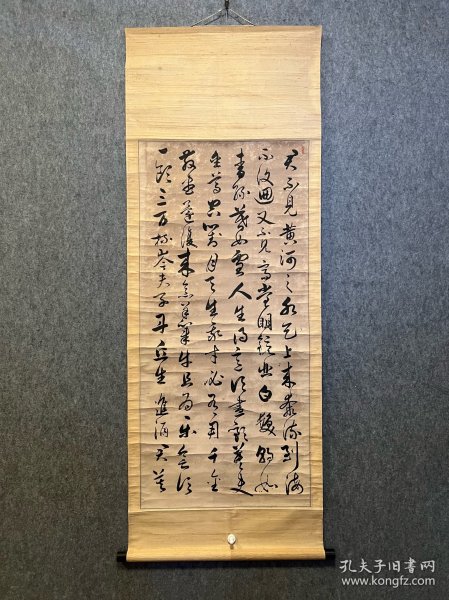 君不見黄河之水天上来奔流到海
不復迴又不見高堂明鏡悲白髮朝如
青絲暮如雪人生得意須盡歡莫使
金尊空對月天生我才必有用千金
散盡還復来烹羊宰牛且為樂會須
一飲三百杯岑夫子丹丘生進酒君莫
孔夫子旧书网
www.kongfz.com